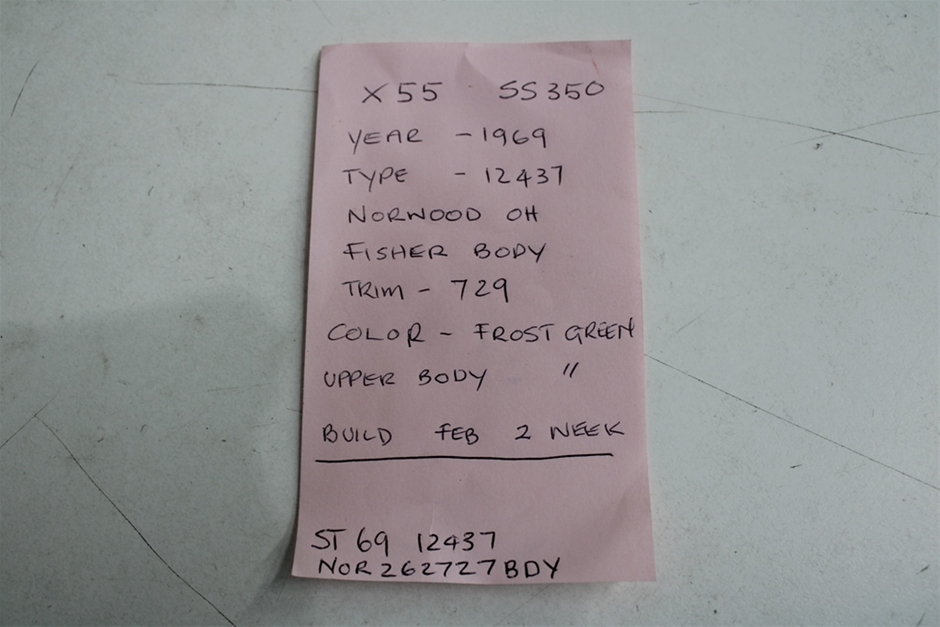 X55 SS350
YEAR - 1969
TYPE - 12437
NORWOOD OH
FISHER BODY
TRIM - 729
COLOR - FROST GREEN
UPPER BODY "
BUILD FEB 2 WEEK
ST 69 12437
NOR262727BDY